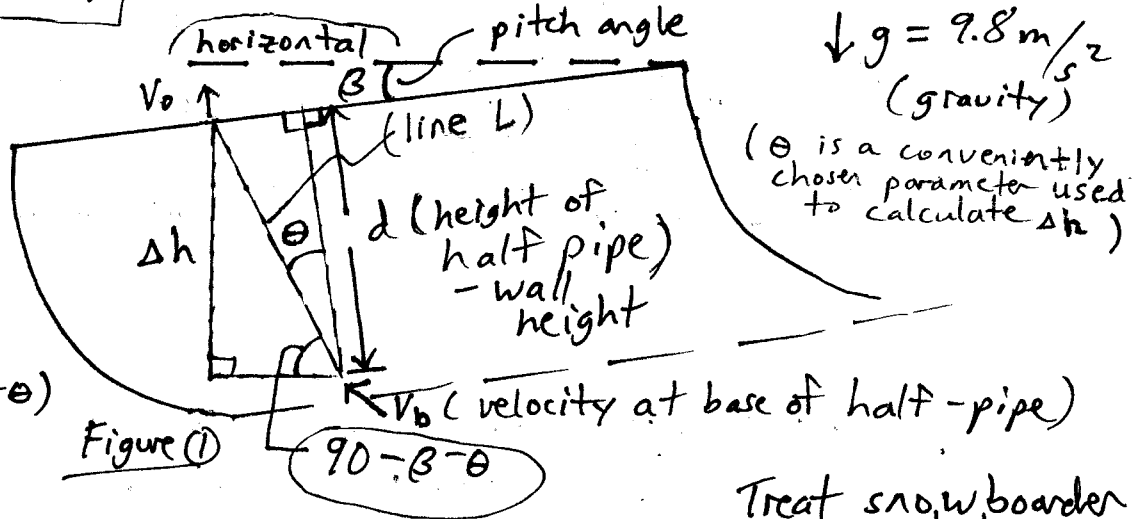 horizontal
pitch angle
↓ g = 9.8 m/s²
(gravity)
V₀
β
(line L)
(θ is a conveniently
chosen parameter used
to calculate Δh)
Δh
θ
d (height of
half pipe)
- wall
height
-θ)
V_b (velocity at base of half-pipe)
Figure ①
90-β-θ
Treat snowboarder